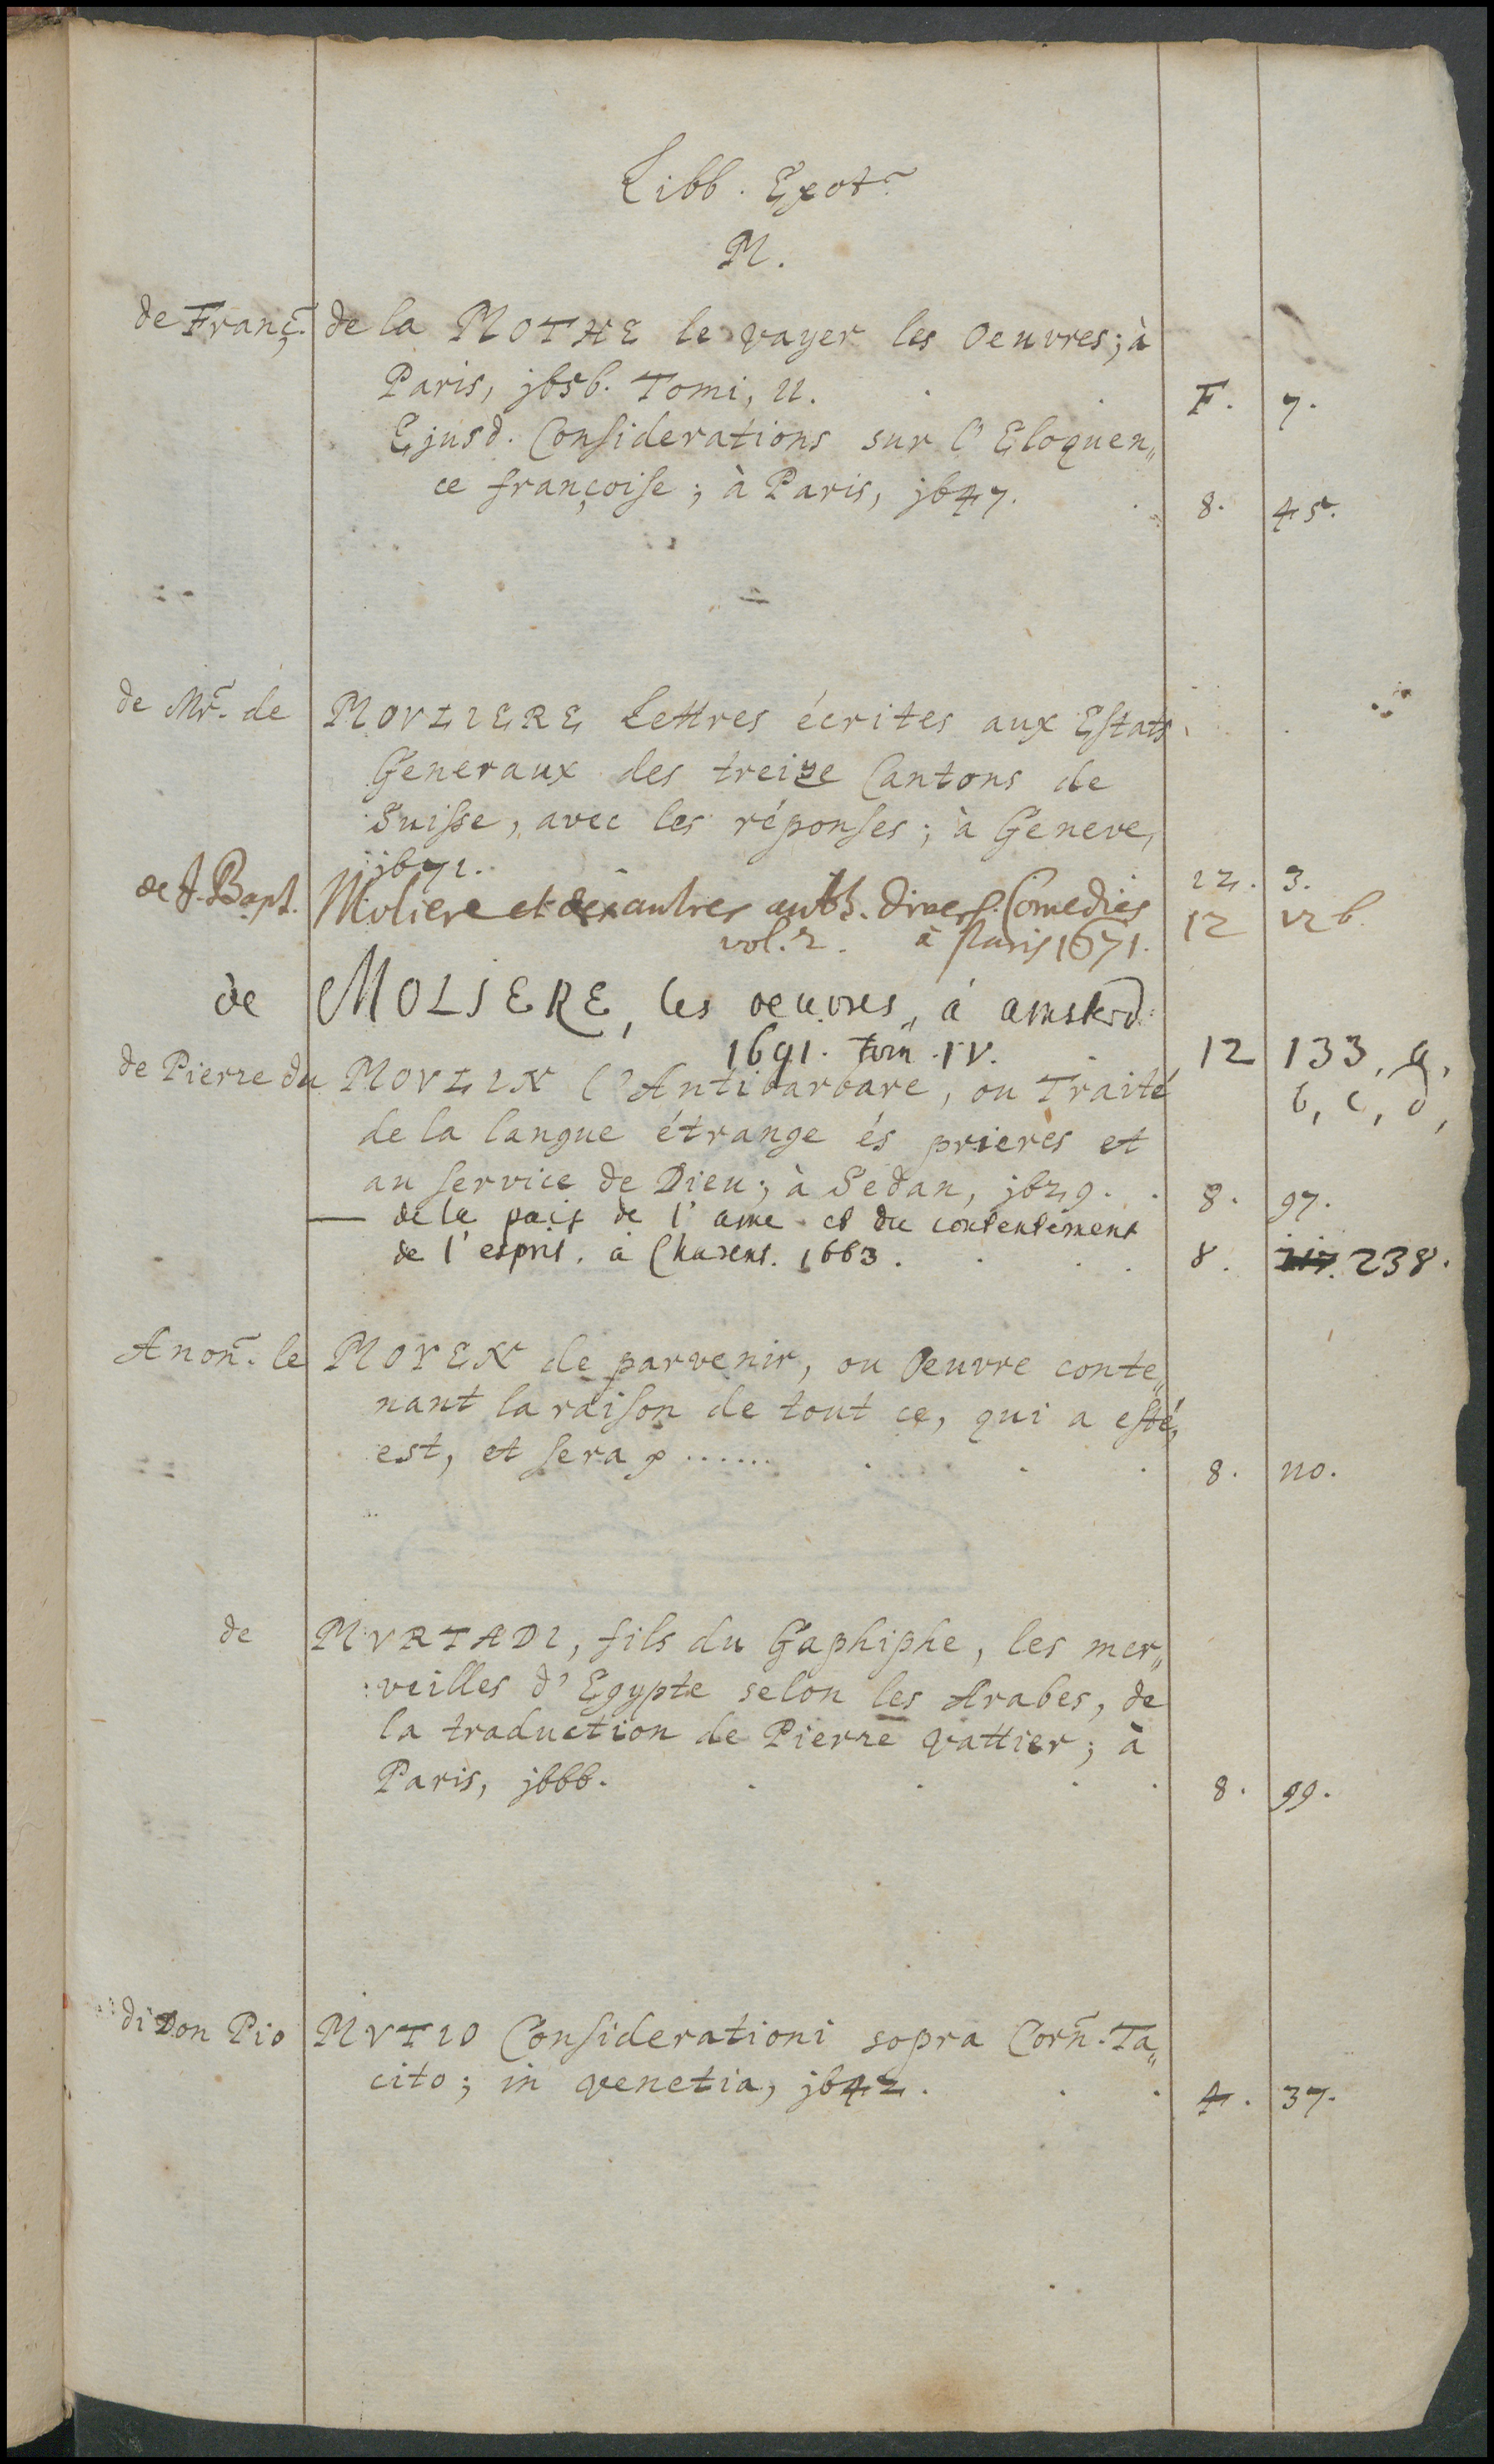 Libb. Exot.
M.
de Franç. de la MOTHE le vayer les Oeuvres; à
Paris, j656. Tomi, II. F. 7.
Ejusd. Considerations sur l'Eloquen„
ce françoise; à Paris, j647. 8. 45.
de Mr. de MOVLIERE Lettres écrites aux Estats
Generaux des treize Cantons de
Suisse, avec les réponses; à Geneve,
j671. 12. 3.
de J. Bapt. Moliere et des autres auth. divers. Comedies
vol. 2. à Paris 1671. 12 12 b.
de MOLIERE, les oeuvres, à amsterd.
1691. tom. IV. 12 133, a,
b, c, d,
de Pierre du MOVLIN l'Antibarbare, ou Traité
de la langue étrange és prieres et
au service de Dieu; à Sedan, j629. 8. 97.
— de la paix de l'ame et du contentement
de l'esprit. à Charent. 1663. 8. 238.
Anon. le MOYEN de parvenir, ou Oeuvre conte„
nant la raison de tout ce, qui a esté,
est, et sera ...... 8. 110.
de MVRTADI, fils du Gaphiphe, les mer„
veilles d'Egypte selon les Arabes, de
la traduction de Pierre Vattier; à
Paris, j666. 8. 99.
di Don Pio MVTIO Considerationi sopra Corn. Ta„
cito; in Venetia, j642. 4. 37.